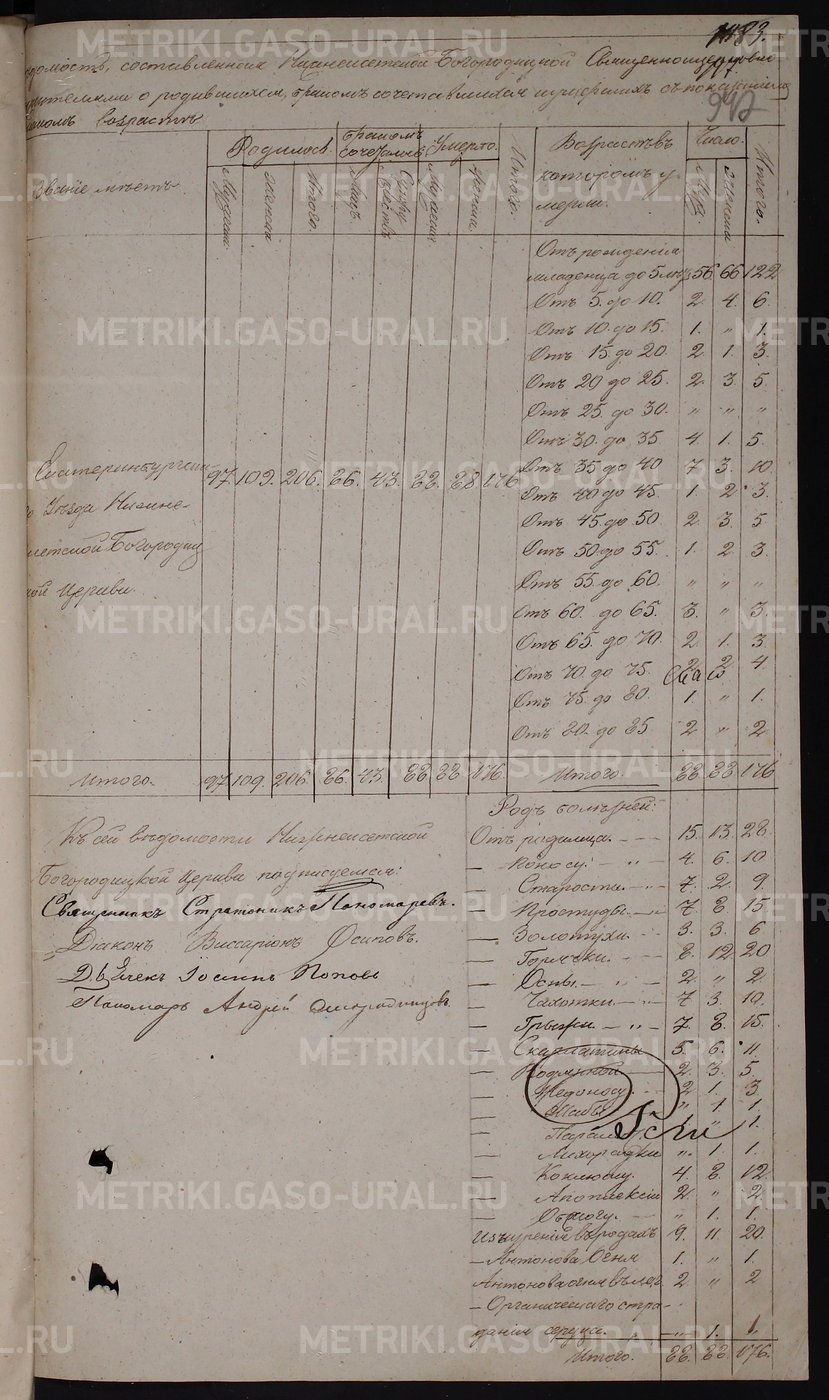 домость, составленная Нижнеисетской Богородицкой Священноцерковно
жителями о родившихся, браком сочетавшихся и умерших съ показаніем
возрасть
942
Званіе мѣстъ.
Родилось.
Браком сочеталось
Умерло.
Итого.
Возрастъ въ котором умерли.
Число.
Итого.
Мужеска
женска
Итого.
Мужеска
женска
Муж.
женска
Отъ рожденія
младенца до 5 лѣтъ 56 66 122
Отъ 5. до 10. 2. 4. 6.
Отъ 10 до 15. 1. „ 1.
Отъ 15. до 20. 2. 1. 3.
Отъ 20 до 25. 2. 3. 5.
Отъ 25. до 30. „ „ „
Отъ 30. до 35. 4. 1. 5.
Отъ 35 до 40 7. 3. 10.
Отъ 40 до 45. 1. 2. 3.
Отъ 45 до 50. 2. 3. 5
Отъ 50 до 55. 1. 2. 3.
Отъ 55. до 60. „ „ „
Отъ 60. до 65. 3. „ 3.
Отъ 65. до 70. 2. 1. 3.
Отъ 70 до 75. 2 2 4
Отъ 75. до 80. 1. „ 1.
Отъ 80. до 85 2 „ 2
Екатеринбургска- 97. 109. 206. 86. 43. 88. 88. 176.
го Уѣзда Нижне-
исетской Богородиц
кой Церкви.
Итого. 97. 109. 206. 86. 43. 88 88. 176. Итого. 88. 88. 176
Родъ болѣзней:
Къ сей вѣдомости Нижнеисетской
Богородицкой Церкви подписуемся:
Священникъ Стратоникъ Пономаревъ.
Діаконъ Виссаріонъ Осиповъ.
Дьячекъ Іоаннъ Поповъ
Пономарь Андрей
Отъ родимца. 15. 13. 28.
— Поносу. „ 4. 6. 10
— Старости. 7. 2. 9.
— Простуды. 7 8. 15
— Золотухи. 3. 3. 6
— Горячки. 8. 12 20
— Оспы. „ 2 „ 2
— Чахотки. 7 3. 10.
— Грыжи „ 7. 8. 15.
— Скарлатины 5. 6. 11
— 2. 3. 5.
— Недоносу. 2 1. 3
— „ 1 1.
— „ 1.
— Лихорадки „ 1. 1.
— Коклюшу. 4. 8. 12
— Апоплексіи 2. „ 2
— Ожогу. „ 1. 1.
Изнуренія въ родахъ 9. 11 20
— Антонова Огня 1. „ 1.
Антонова огня 2 „ 2
— Органическаго стра-
данія сердца. „ 1. 1.
Итого. 88. 88. 176.
METRIKI.GASO-URAL.RU